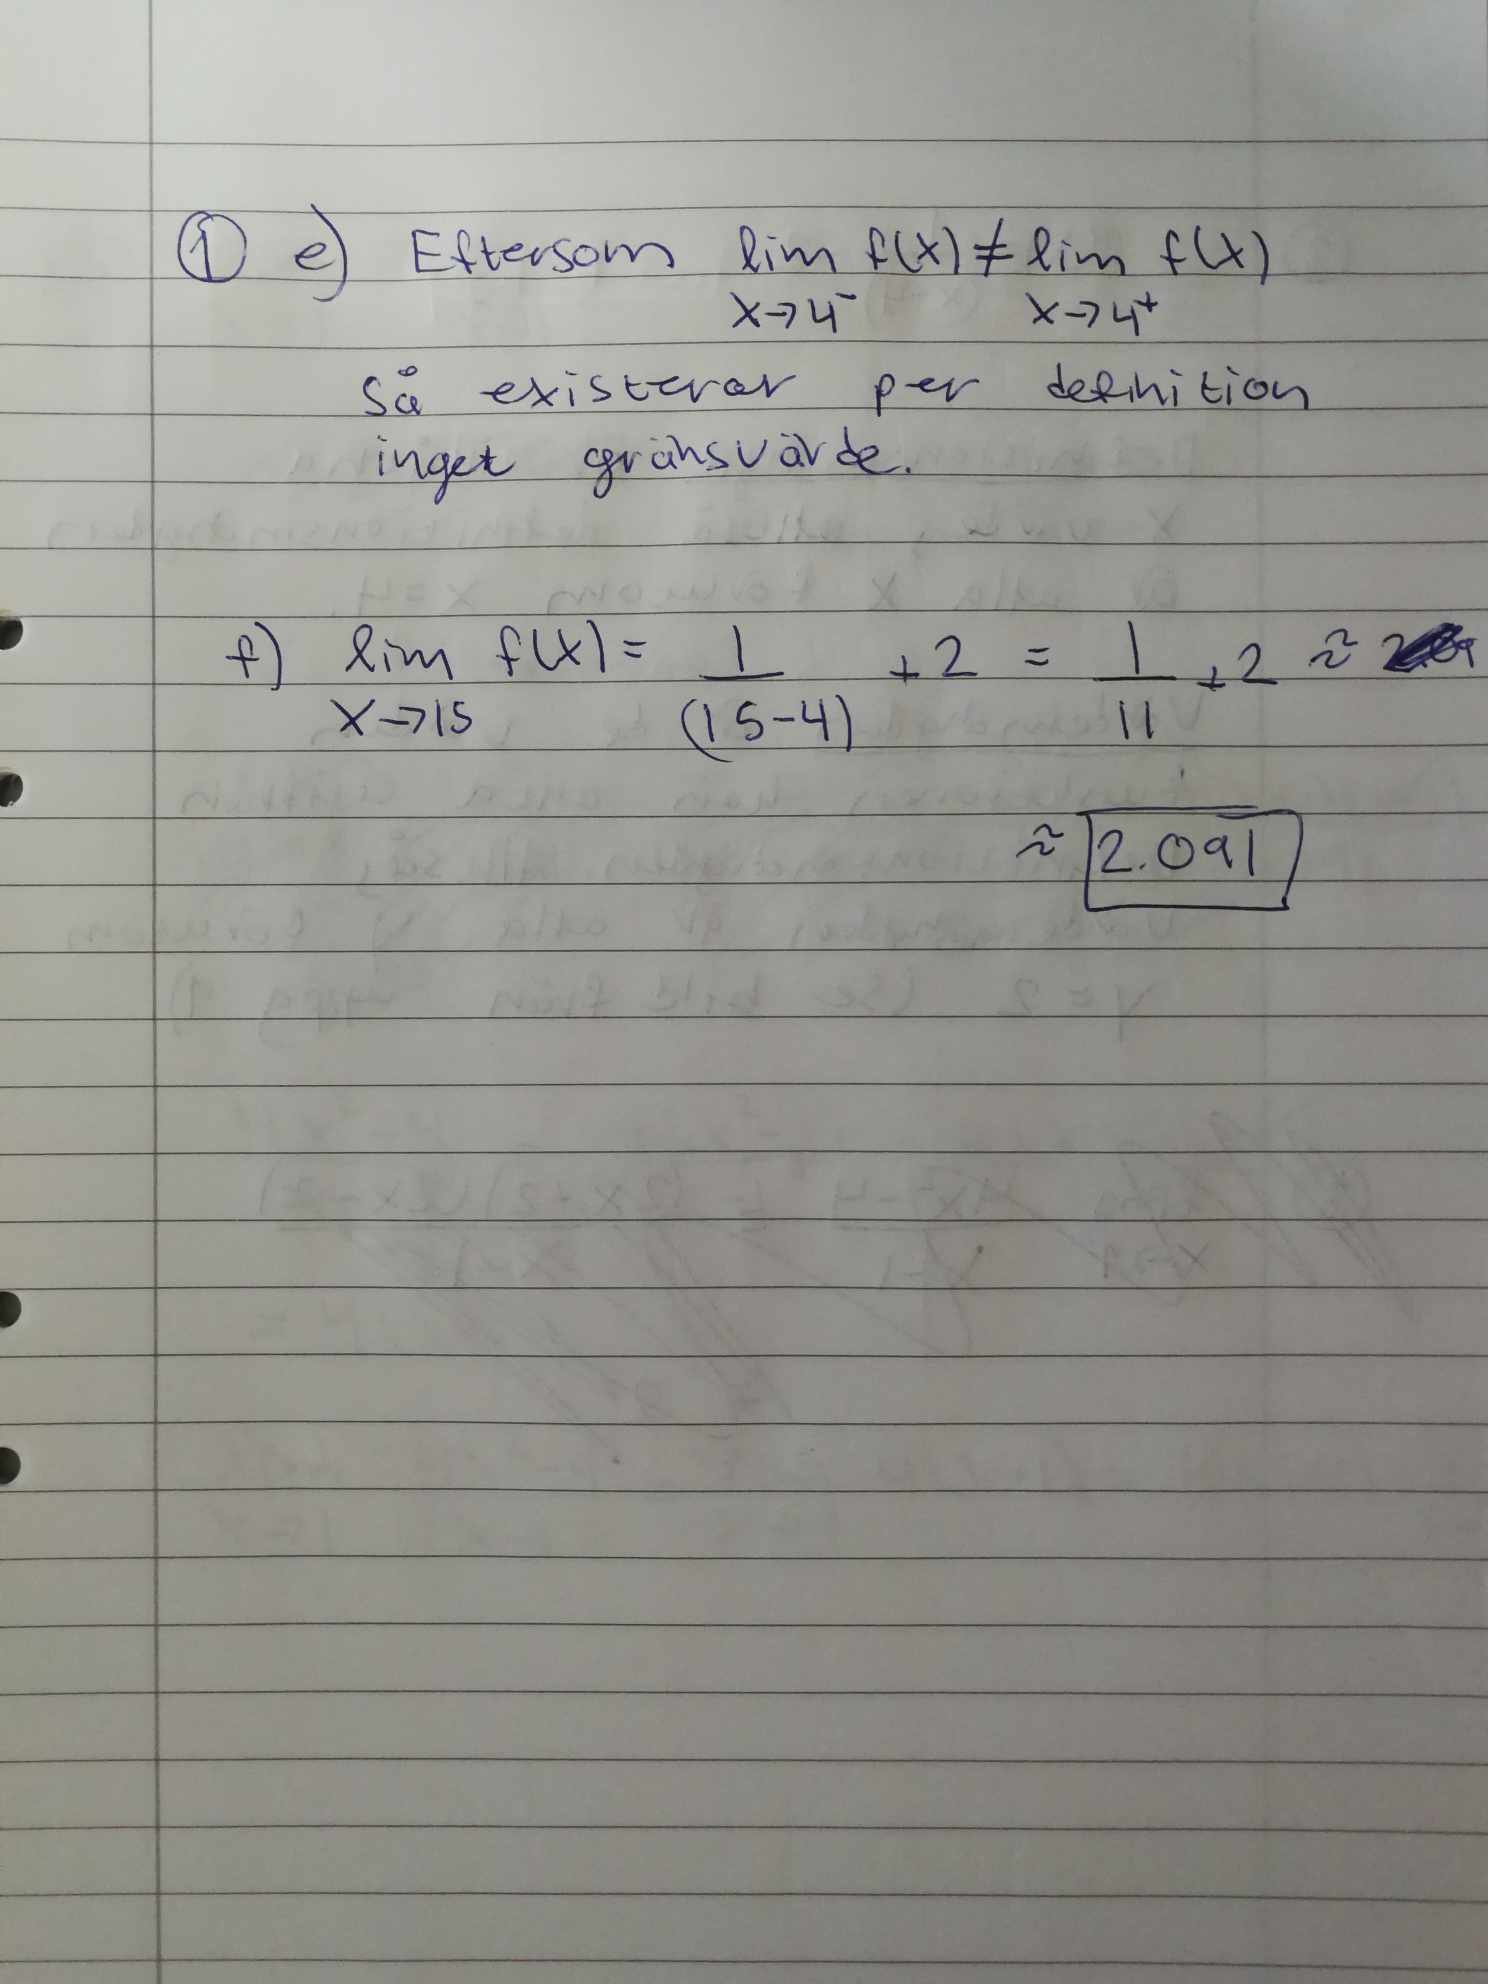 ① e) Eftersom lim f(x) ≠ lim f(x)
x→4⁻ x→4⁺
så existerar per definition
inget gränsvärde.
f) lim f(x) = 1/(15-4) + 2 = 1/11 + 2 ≈
x→15
≈ 2.091